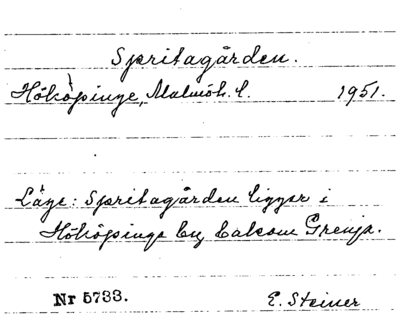 Spritagården.
Hököpinge, Malmöh. l. 1951.
Läge: Spritagården ligger i
Hököpinge by
Nr 5733.
E. Steiner